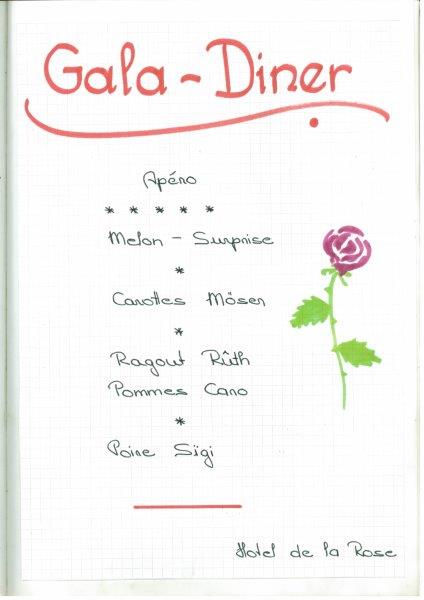 Gala - Diner
Apéro
* * * * *
Melon - Surprise
*
Carottes Möser
*
Ragout Rûth
Pommes Caro
*
Poire Sïgi
Hotel de la Rose